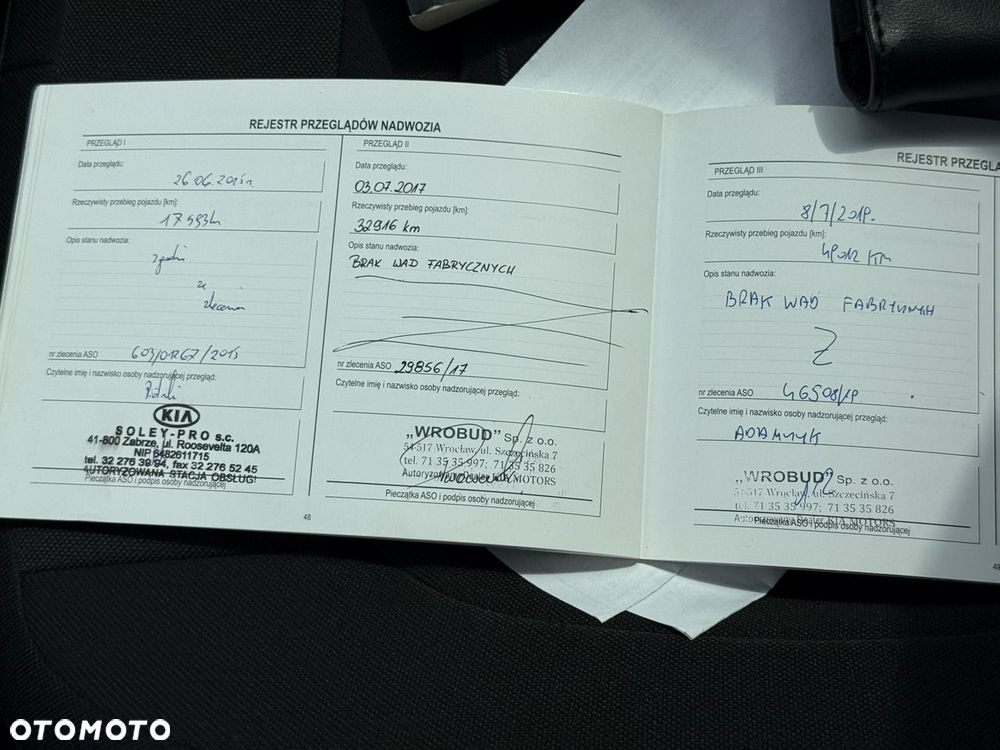 REJESTR PRZEGLĄDÓW NADWOZIA
PRZEGLĄD I
Data przeglądu:
26.06.2015r.
Rzeczywisty przebieg pojazdu [km]:
17593km
Opis stanu nadwozia:
nr zlecenia ASO 603/01267/2015
Czytelne imię i nazwisko osoby nadzorującej przegląd:
KIA
SOLEY-PRO s.c.
41-800 Zabrze, ul. Roosevelta 120A
NIP 6482611715
tel. 32 276 39 94, fax 32 276 52 45
AUTORYZOWANA STACJA OBSŁUGI
Pieczątka ASO i podpis osoby nadzorującej
48
PRZEGLĄD II
Data przeglądu:
03.07.2017
Rzeczywisty przebieg pojazdu [km]:
32916 km
Opis stanu nadwozia:
BRAK WAD FABRYCZNYCH
nr zlecenia ASO 29856/17
Czytelne imię i nazwisko osoby nadzorującej przegląd:
„WROBUD" Sp. z o.o.
54-517 Wrocław, ul. Szczecińska 7
tel. 71 35 35 997; 71 35 35 826
Autoryzowany Dealer KIA MOTORS
Pieczątka ASO i podpis osoby nadzorującej
REJESTR PRZEGLĄ
PRZEGLĄD III
Data przeglądu:
8/7/2019.
Rzeczywisty przebieg pojazdu [km]:
49012 KM
Opis stanu nadwozia:
BRAK WAD FABRYCZNYCH
Z
nr zlecenia ASO 46508/19
Czytelne imię i nazwisko osoby nadzorującej przegląd:
ADAMCZYK
„WROBUD" Sp. z o.o.
54-517 Wrocław, ul. Szczecińska 7
tel. 71 35 35 997; 71 35 35 826
Autoryzowany Dealer KIA MOTORS
Pieczątka ASO i podpis osoby nadzorującej
49
OTOMOTO